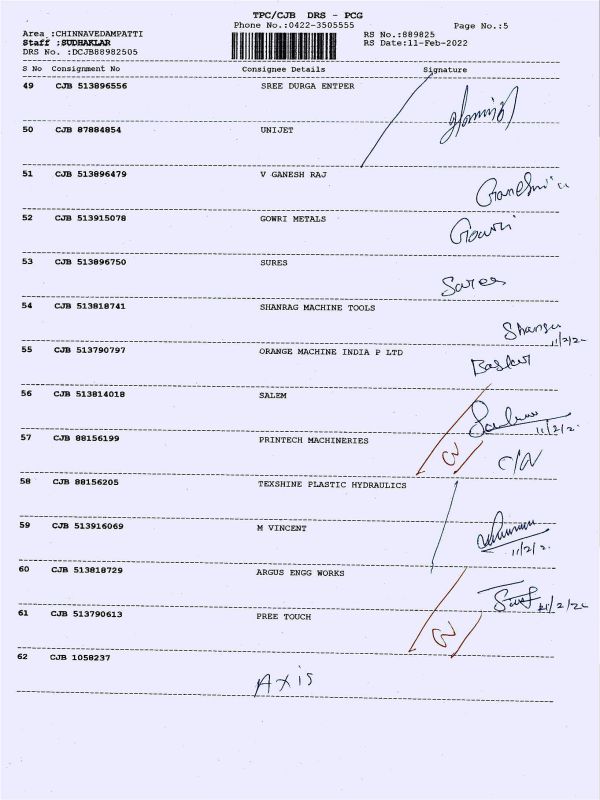 TPC/CJB DRS - PCG
Phone No.:0422-3505555 Page No.:5
Area :CHINNAVEDAMPATTI RS No.:889825
Staff :SUDHAKLAR RS Date:11-Feb-2022
DRS No. :DCJB88982505
S No Consignment No Consignee Details Signature
49 CJB 513896556 SREE DURGA ENTPER
50 CJB 87884854 UNIJET
51 CJB 513896479 V GANESH RAJ
52 CJB 513915078 GOWRI METALS
Gowri
53 CJB 513896750 SURES
Sures
54 CJB 513818741 SHANRAG MACHINE TOOLS
11/2/22
55 CJB 513790797 ORANGE MACHINE INDIA P LTD
Baskar
56 CJB 513814018 SALEM
11/2/2
57 CJB 88156199 PRINTECH MACHINERIES
58 CJB 88156205 TEXSHINE PLASTIC HYDRAULICS
59 CJB 513916069 M VINCENT
11/2/2
60 CJB 513818729 ARGUS ENGG WORKS
61 CJB 513790613 PREE TOUCH
62 CJB 1058237
Axis